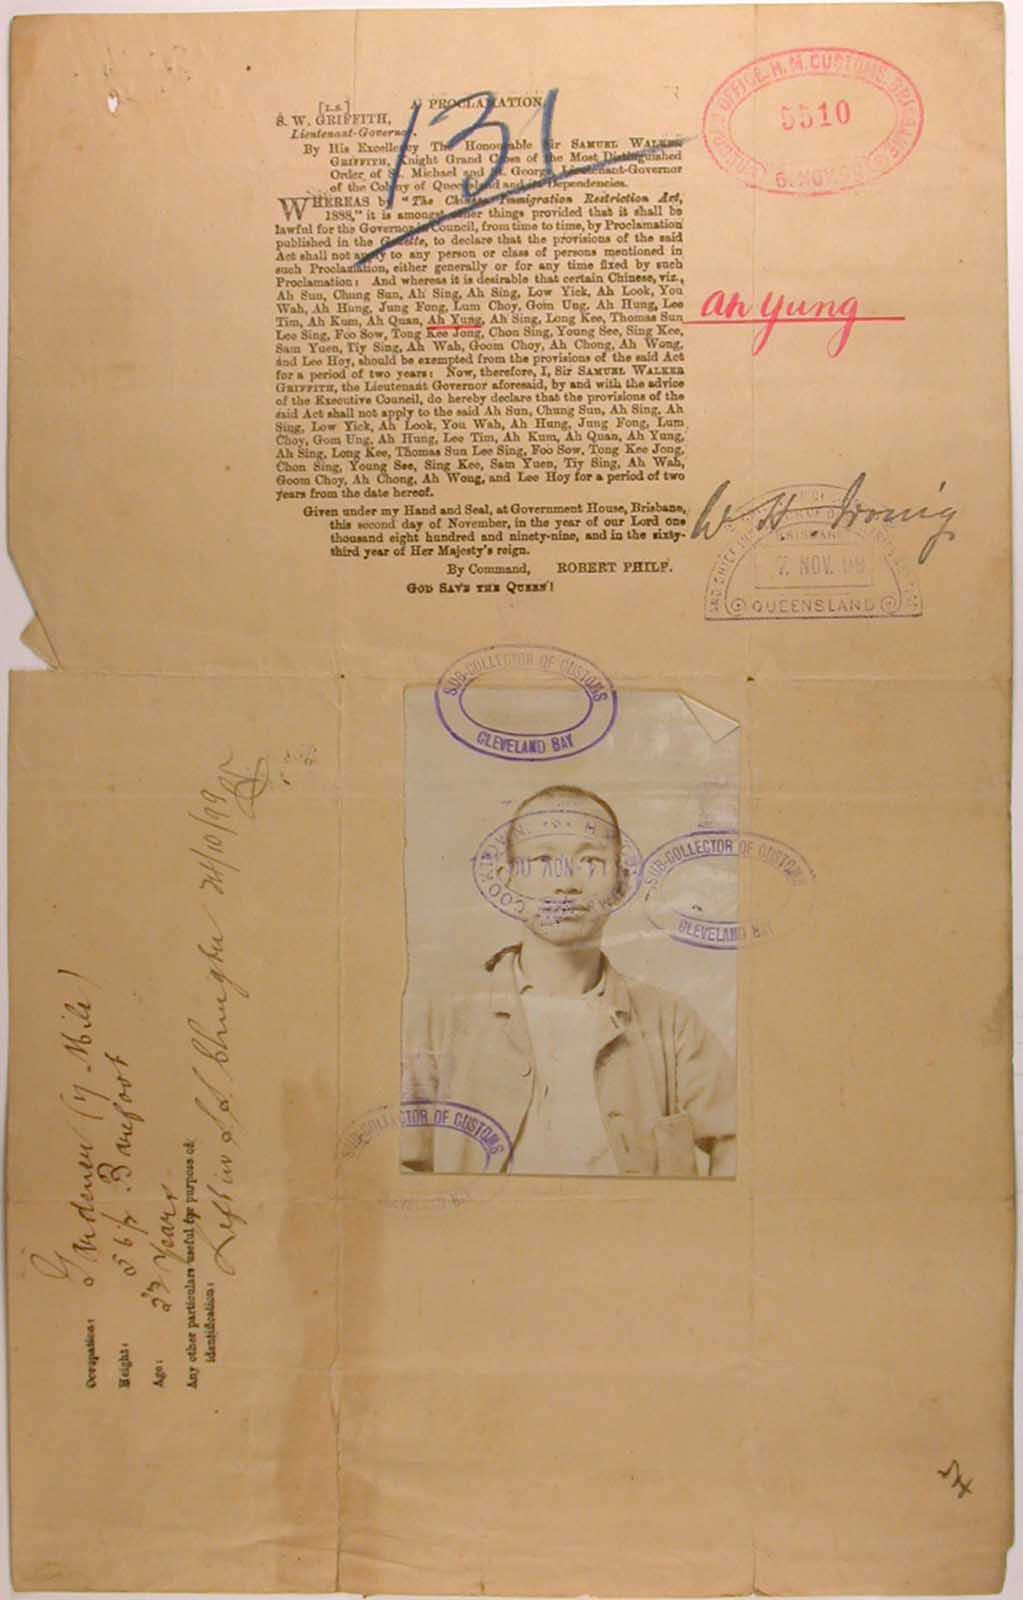 [L.S.] A PROCLAMATION.
S. W. GRIFFITH,
Lieutenant-Governor.
By His Excellency The Honourable Sir SAMUEL WALKER
GRIFFITH, Knight Grand Cross of the Most Distinguished
Order of St. Michael and St. George, Lieutenant-Governor
of the Colony of Queensland and its Dependencies.
WHEREAS by "The Chinese Immigration Restriction Act,
1888," it is amongst other things provided that it shall be
lawful for the Governor in Council, from time to time, by Proclamation
published in the Gazette, to declare that the provisions of the said
Act shall not apply to any person or class of persons mentioned in
such Proclamation, either generally or for any time fixed by such
Proclamation: And whereas it is desirable that certain Chinese, viz.,
Ah Sun, Chung Sun, Ah Sing, Ah Sing, Low Yick, Ah Look, You
Wah, Ah Hung, Jung Fong, Lum Choy, Gom Ung, Ah Hung, Lee
Tim, Ah Kum, Ah Quan, Ah Yung, Ah Sing, Long Kee, Thomas Sun
Lee Sing, Foo Sow, Tong Kee Jong, Chon Sing, Young See, Sing Kee,
Sam Yuen, Tiy Sing, Ah Wah, Goom Choy, Ah Chong, Ah Wong,
and Lee Hoy, should be exempted from the provisions of the said Act
for a period of two years: Now, therefore, I, Sir SAMUEL WALKER
GRIFFITH, the Lieutenant Governor aforesaid, by and with the advice
of the Executive Council, do hereby declare that the provisions of the
said Act shall not apply to the said Ah Sun, Chung Sun, Ah Sing, Ah
Sing, Low Yick, Ah Look, You Wah, Ah Hung, Jung Fong, Lum
Choy, Gom Ung, Ah Hung, Lee Tim, Ah Kum, Ah Quan, Ah Yung,
Ah Sing, Long Kee, Thomas Sun Lee Sing, Foo Sow, Tong Kee Jong,
Chon Sing, Young See, Sing Kee, Sam Yuen, Tiy Sing, Ah Wah,
Goom Choy, Ah Chong, Ah Wong, and Lee Hoy for a period of two
years from the date hereof.
Given under my Hand and Seal, at Government House, Brisbane,
this second day of November, in the year of our Lord one
thousand eight hundred and ninety-nine, and in the sixty-
third year of Her Majesty's reign.
By Command, ROBERT PHILP.
GOD SAVE THE QUEEN!
131
OFFICE, H. M. CUSTOMS, BRISBANE
5510
6. NOV.
Ah Yung
W H Irving
BRISBANE
7. NOV. 99
QUEENSLAND
SUB-COLLECTOR OF CUSTOMS
CLEVELAND BAY
COOKTOWN
SUB-COLLECTOR OF CUSTOMS
CLEVELAND BAY
SUB-COLLECTOR OF CUSTOMS
CLEVELAND BAY
Occupation: Gardener (7 Mile)
Height: 5 6½ Barefoot
Age: 27 Years
Any other particulars useful for purpose of
identification:
Left in S.S. 24/10/99